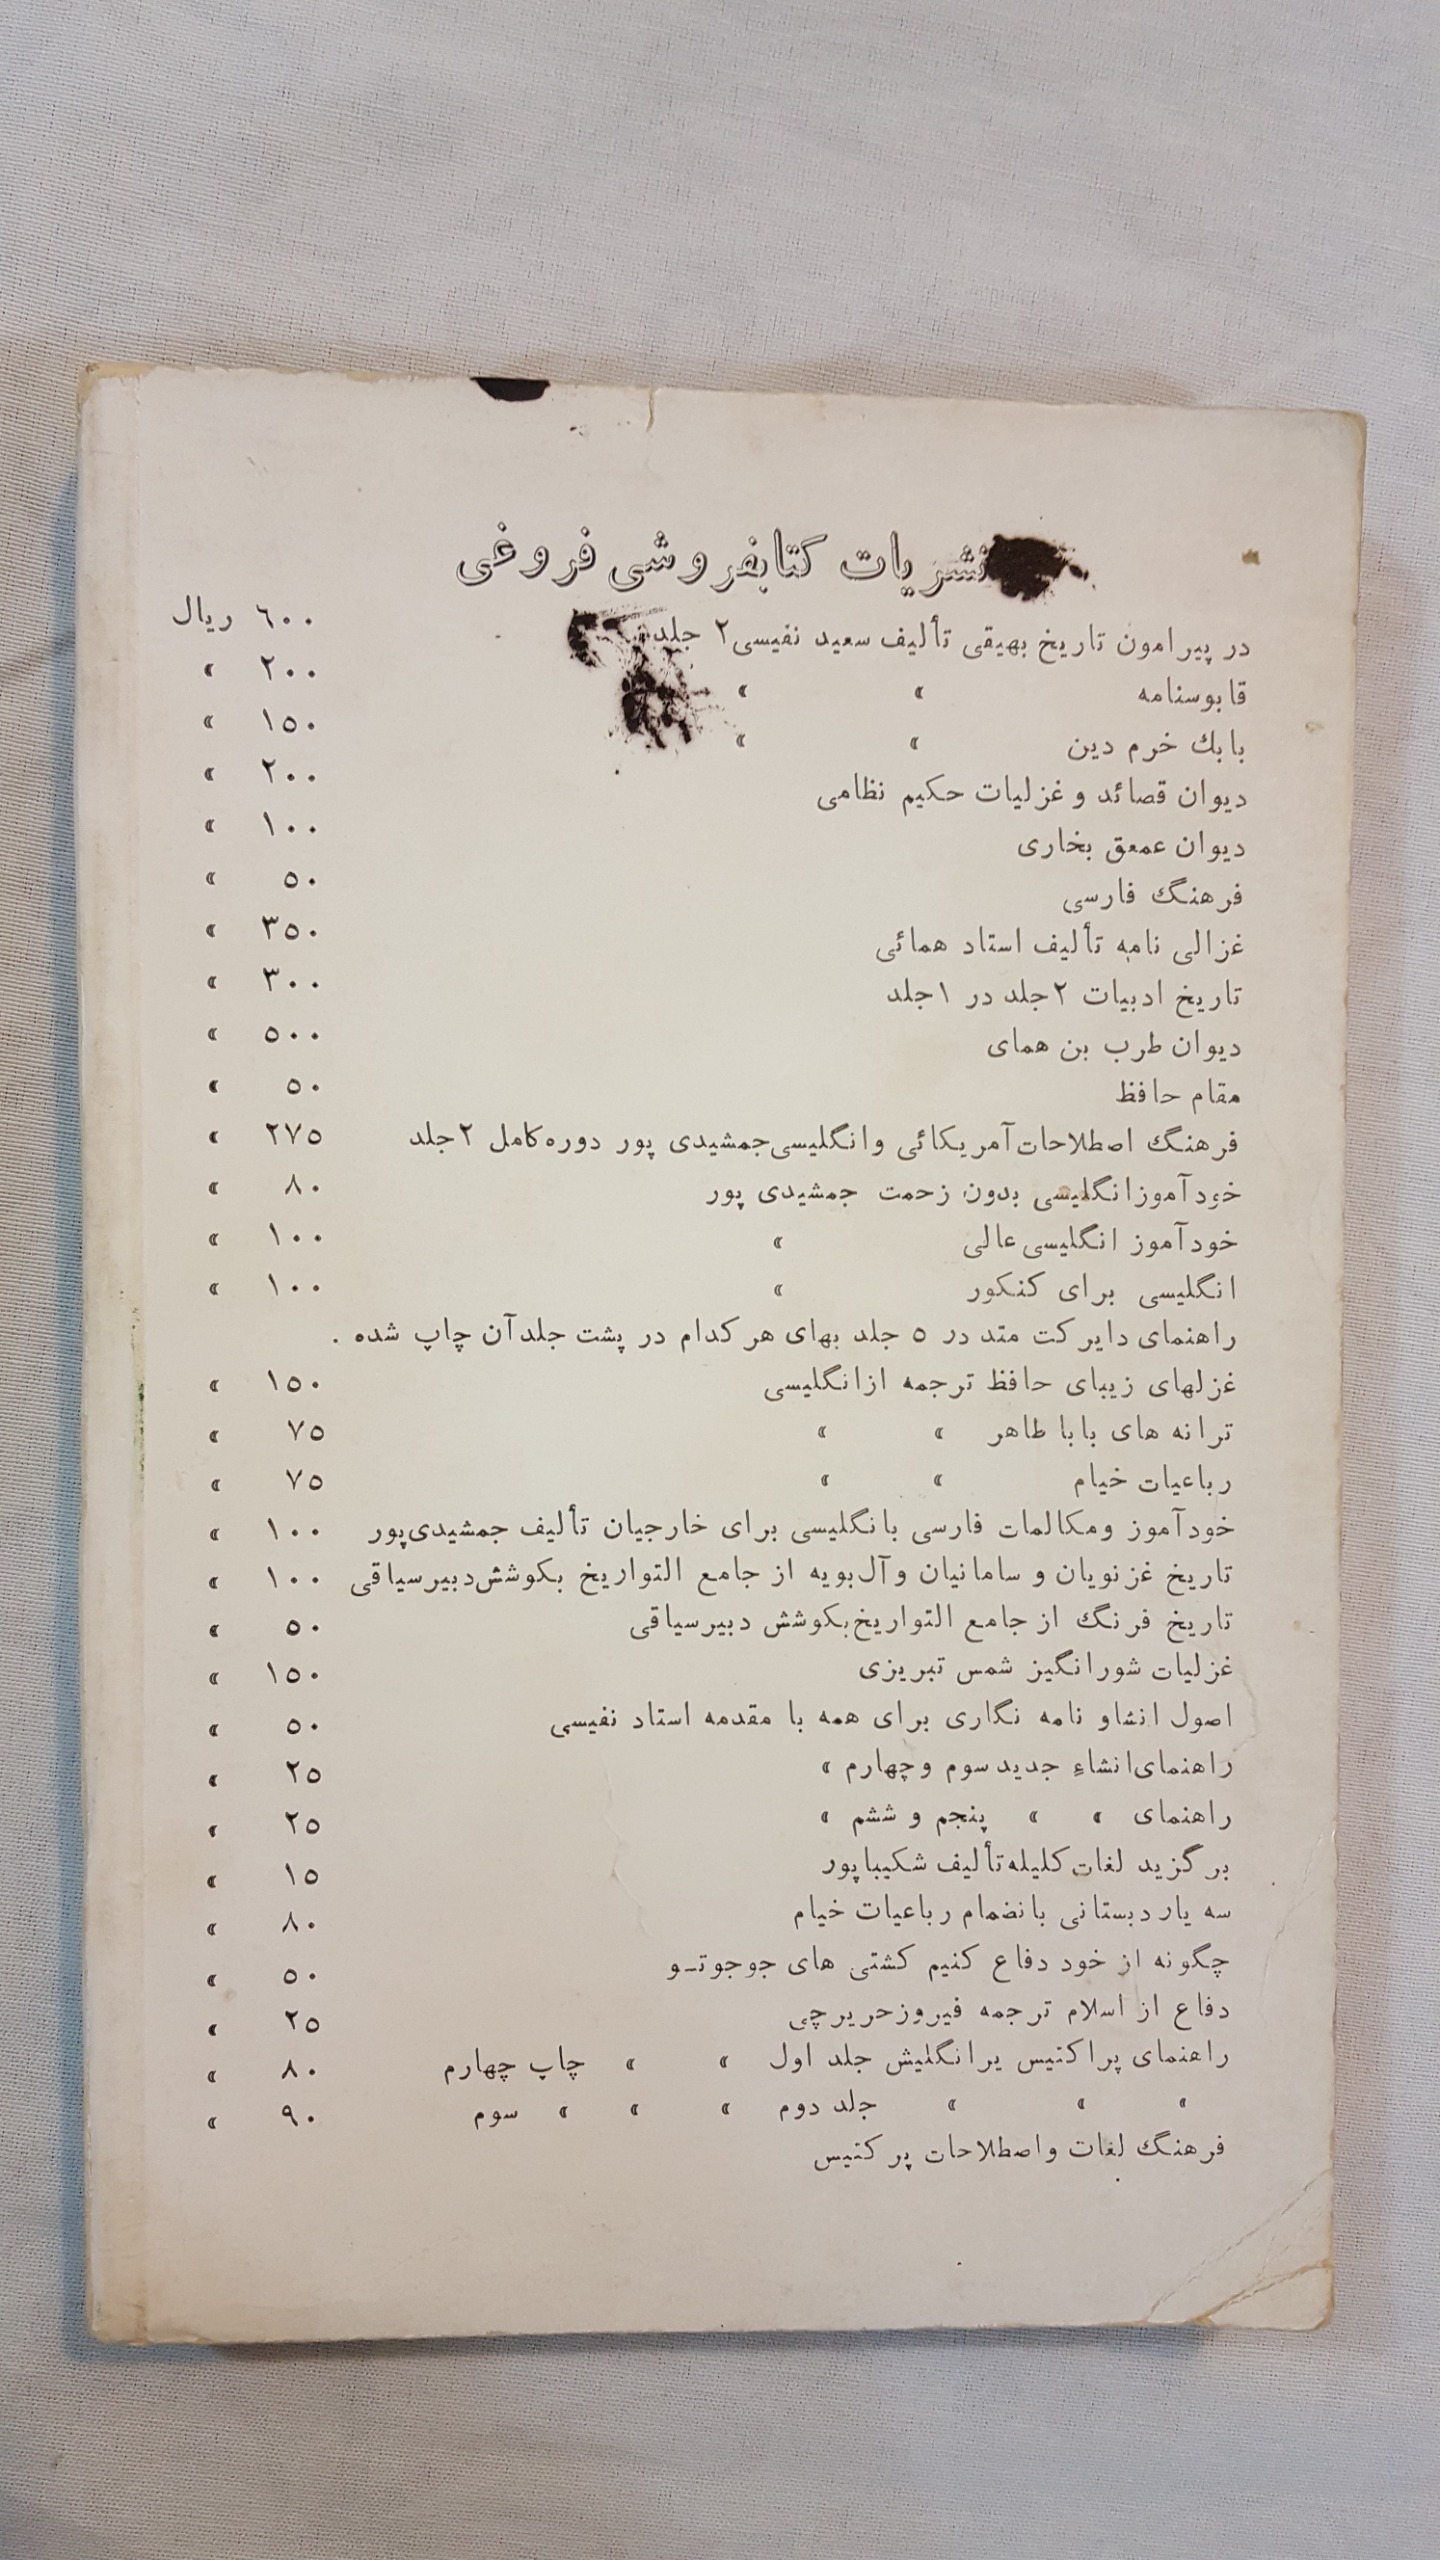 نشریات کتابفروشی فروغی
در پیرامون تاریخ بهیقی تألیف سعید نفیسی ۲ جلد ٦۰۰ ریال
قابوسنامه » » ۲۰۰ »
بابك خرم دین » » ۱٥۰ »
دیوان قصائد و غزلیات حکیم نظامی ۲۰۰ »
دیوان عمعق بخاری ۱۰۰ »
فرهنگ فارسی ٥۰ »
غزالی نامه تألیف استاد همائی ۳٥۰ »
تاریخ ادبیات ۲جلد در ۱جلد ۳۰۰ »
دیوان طرب بن همای ٥۰۰ »
مقام حافظ ٥۰ »
فرهنگ اصطلاحات آمریکائی وانگلیسی جمشیدی پور دوره کامل ۲جلد ۲۷٥ »
خودآموزانگلیسی بدون زحمت جمشیدی پور ۸۰ »
خودآموز انگلیسی عالی » ۱۰۰ »
انگلیسی برای کنکور » ۱۰۰ »
راهنمای دایرکت متد در ٥ جلد بهای هرکدام در پشت جلدآن چاپ شده .
غزلهای زیبای حافظ ترجمه ازانگلیسی ۱٥۰ »
ترانه های بابا طاهر » » ۷٥ »
رباعیات خیام » » ۷٥ »
خودآموز ومکالمات فارسی بانگلیسی برای خارجیان تألیف جمشیدی‌پور ۱۰۰ »
تاریخ غزنویان و سامانیان وآل‌بویه از جامع التواریخ بکوشش‌دبیرسیاقی ۱۰۰ »
تاریخ فرنگ از جامع التواریخ‌بکوشش دبیرسیاقی ٥۰ »
غزلیات شورانگیز شمس تبریزی ۱٥۰ »
اصول انشاو نامه نگاری برای همه با مقدمه استاد نفیسی ٥۰ »
راهنمای‌انشاءِ جدید سوم وچهارم » ۲٥ »
راهنمای » » پنجم و ششم » ۲٥ »
برگزید لغات کلیله تألیف شکیباپور ۱٥ »
سه یار دبستانی بانضمام رباعیات خیام ۸۰ »
چگونه از خود دفاع کنیم کشتی های جوجوتـو ٥۰ »
دفاع از اسلام ترجمه فیروزحریرچی ۲٥ »
راهنمای پراکتیس یرانگلیش جلد اول » » چاپ چهارم ۸۰ »
» » » جلد دوم » » » سوم ۹۰ »
فرهنگ لغات واصطلاحات پرکتیس